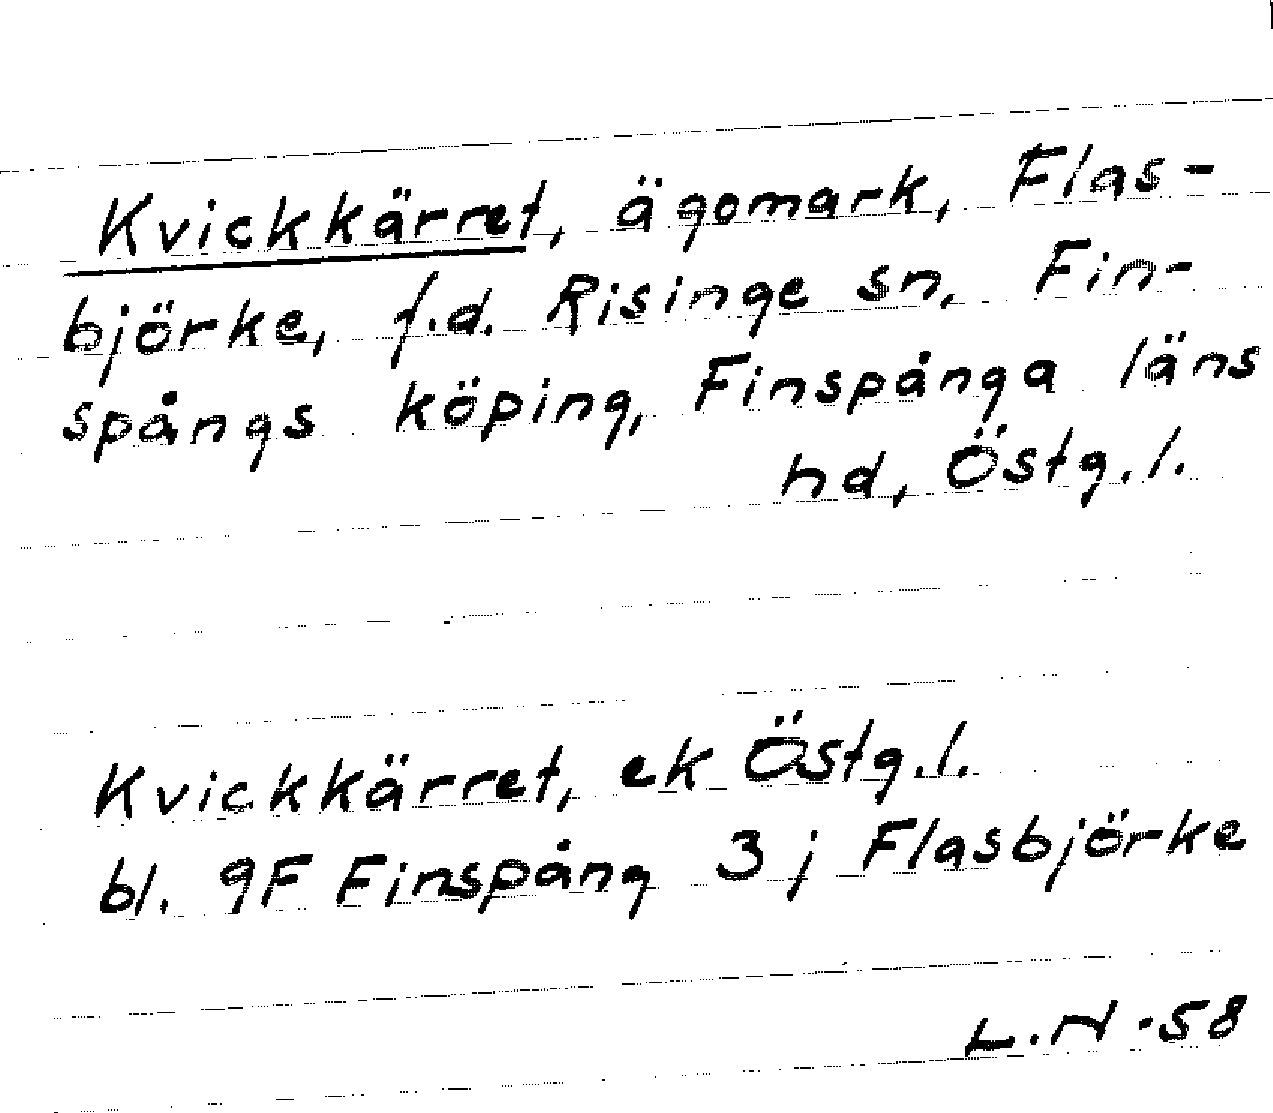 Kvickkärret, ägomark, Flas-
björke, f.d. Risinge sn, Fin-
spångs köping, Finspånga läns
hd, Östg.l.
Kvickkärret, ek Östg.l.
bl. 9F Finspång 3j Flasbjörke
L.N -58